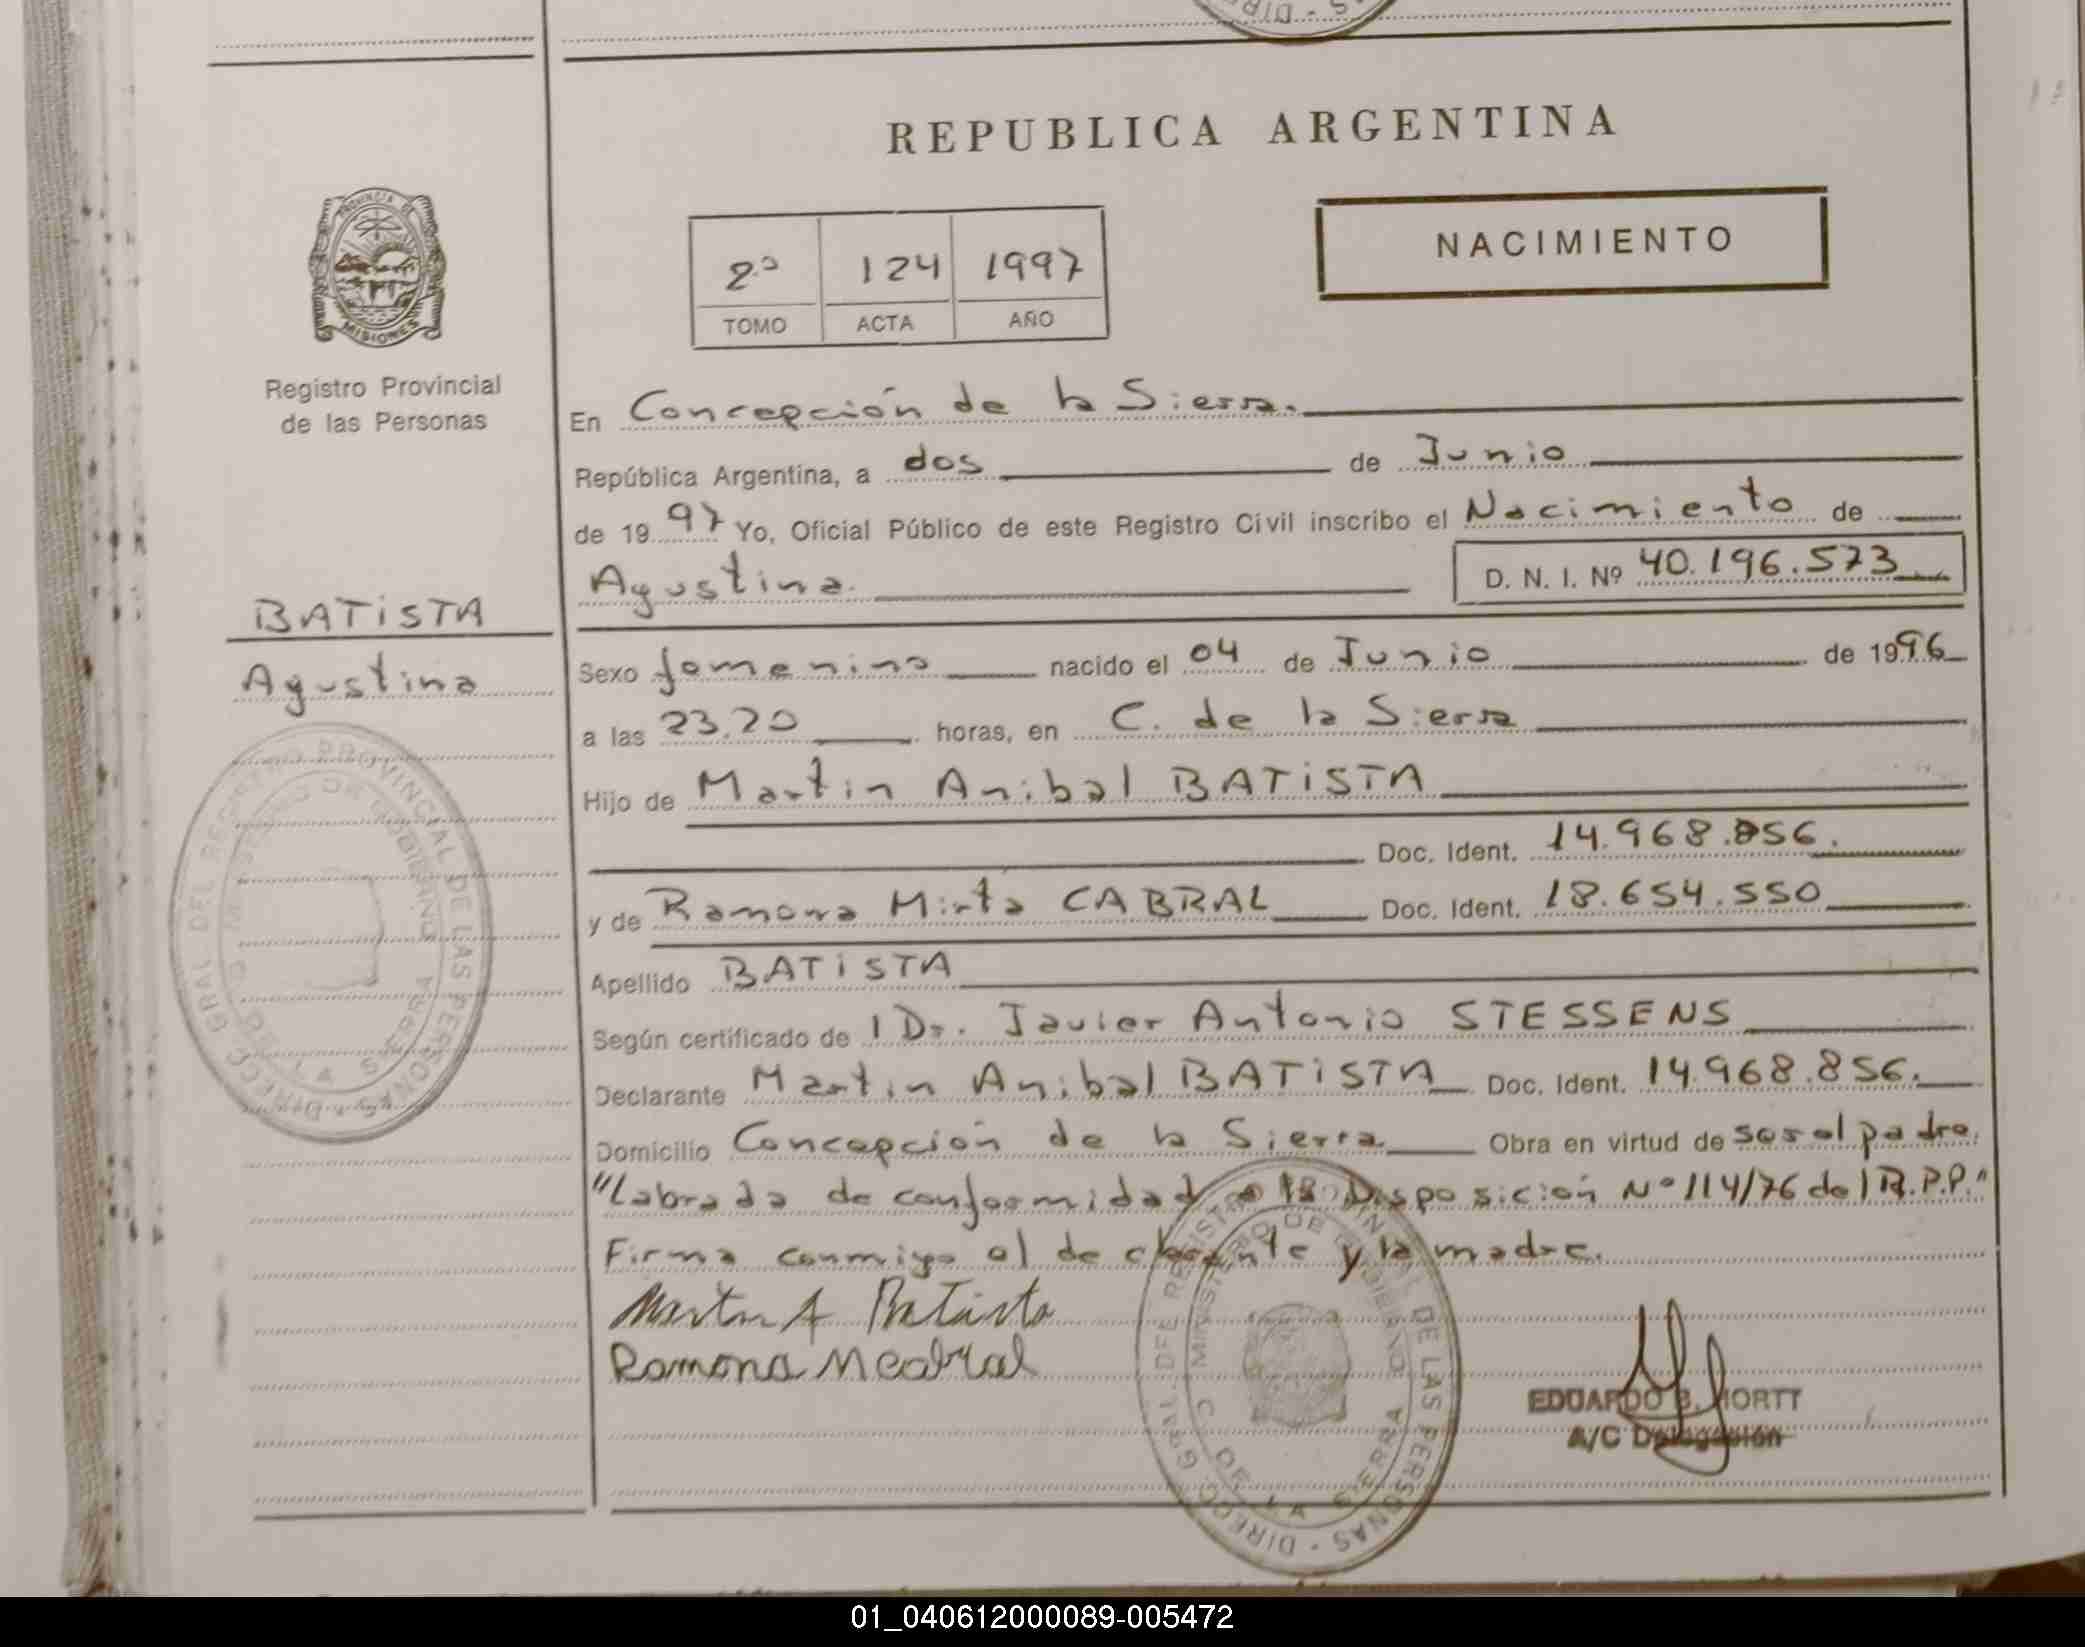 REPUBLICA ARGENTINA
NACIMIENTO
2º 124 1997
TOMO ACTA AÑO
PROVINCIA DE
MISIONES
Registro Provincial
de las Personas
En Concepción de la Sierra.
República Argentina, a dos de Junio
de 1997 Yo, Oficial Público de este Registro Civil inscribo el Nacimiento de
Agustina. D. N. I. Nº 40.196.573
BATiSTA
Agustina
Sexo femenino nacido el 04 de Junio de 1996
a las 23.20 horas, en C. de la Sierra
Hijo de Martin Anibal BATiSTA
Doc. Ident. 14.968.856.
y de Ramona Mirta CABRAL Doc. Ident. 18.654.550
Apellido BATiSTA
Según certificado de l Dr. Javier Antonio STESSENS
Declarante Martin Anibal BATiSTA Doc. Ident. 14.968.856.
Domicilio Concepción de la Sierra Obra en virtud de ser el padre.
"Labrada de conformidad a la Disposición Nº 114/76 del R.P.P."
Firma conmigo el declarante y la madre.
Martin A Batista
Ramona M Cabral
DIRECC. GRAL. DEL REGISTRO PROVINCIAL DE LAS PERSONAS
MINISTERIO DE GOBIERNO
C. DE LA SIERRA
EDUARDO B. MORTT
A/C Delegación
01_040612000089-005472